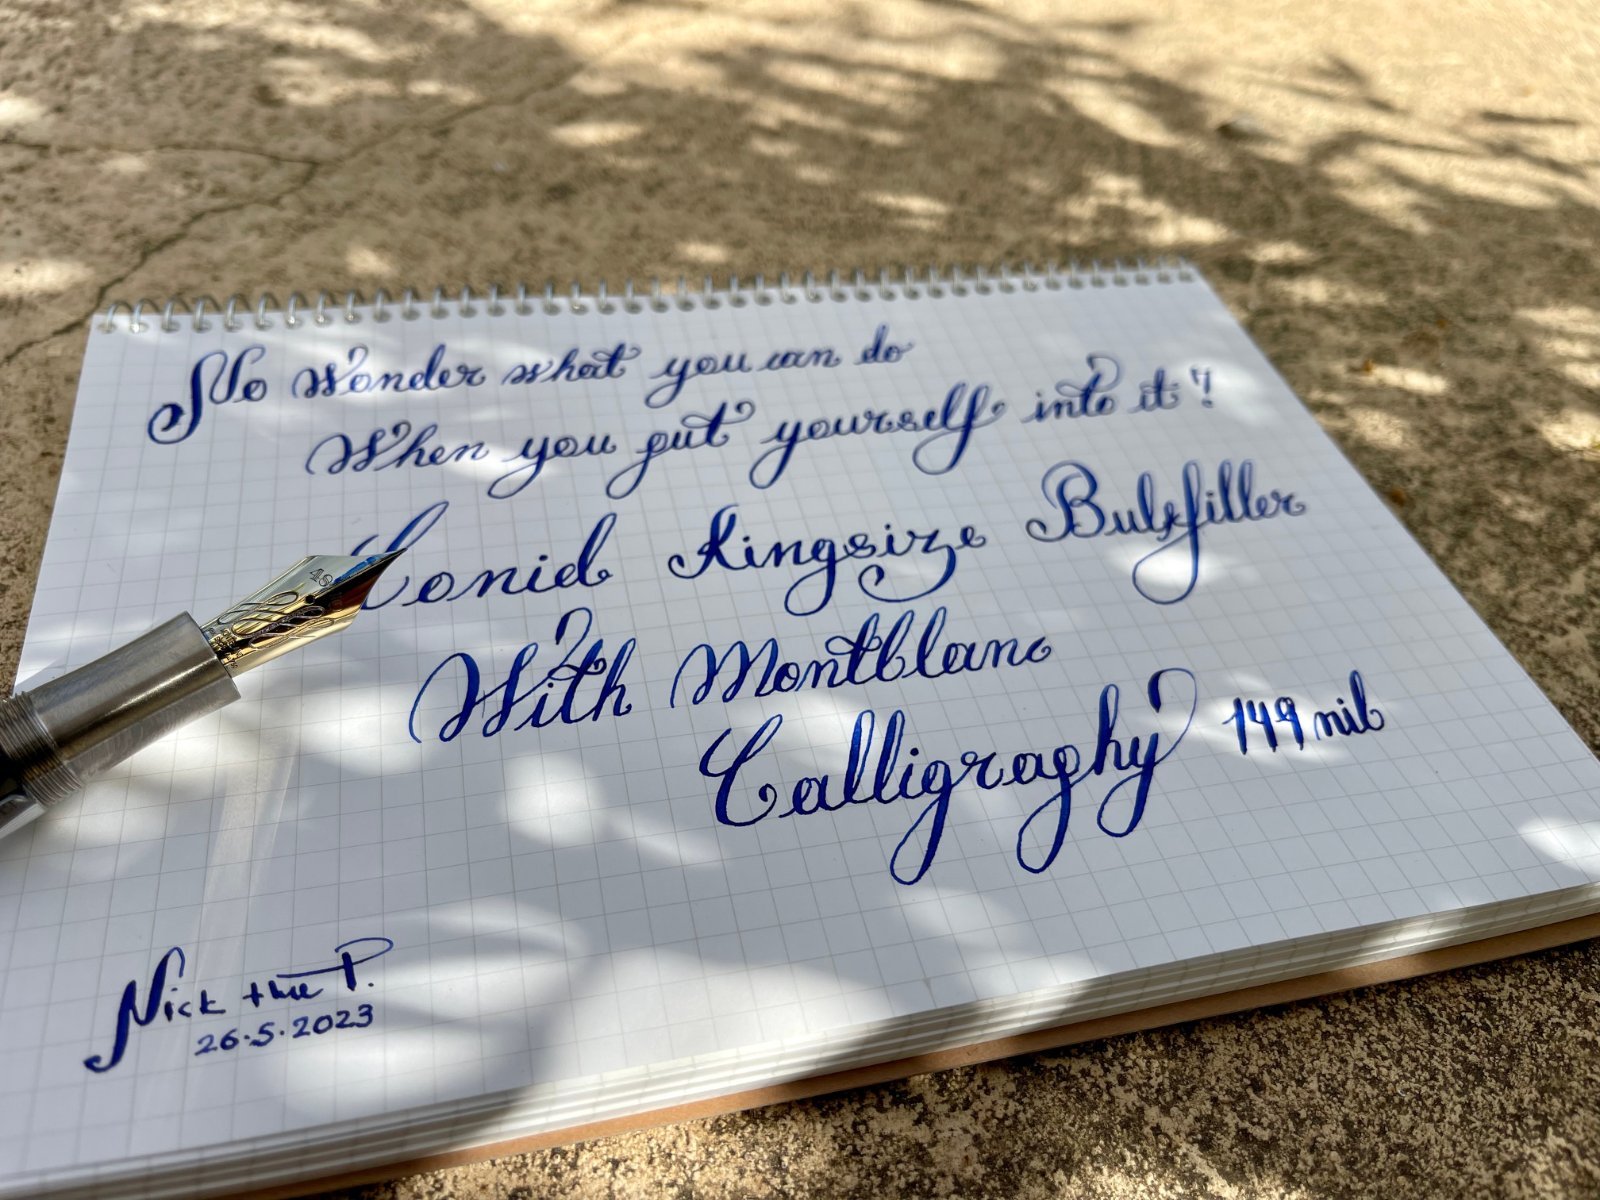 No Wonder what you can do
When you put yourself into it!
Conid Kingsize Bulkfiller
With Montblanc
Calligraphy 149 nib
Nick the P.
26.5.2023